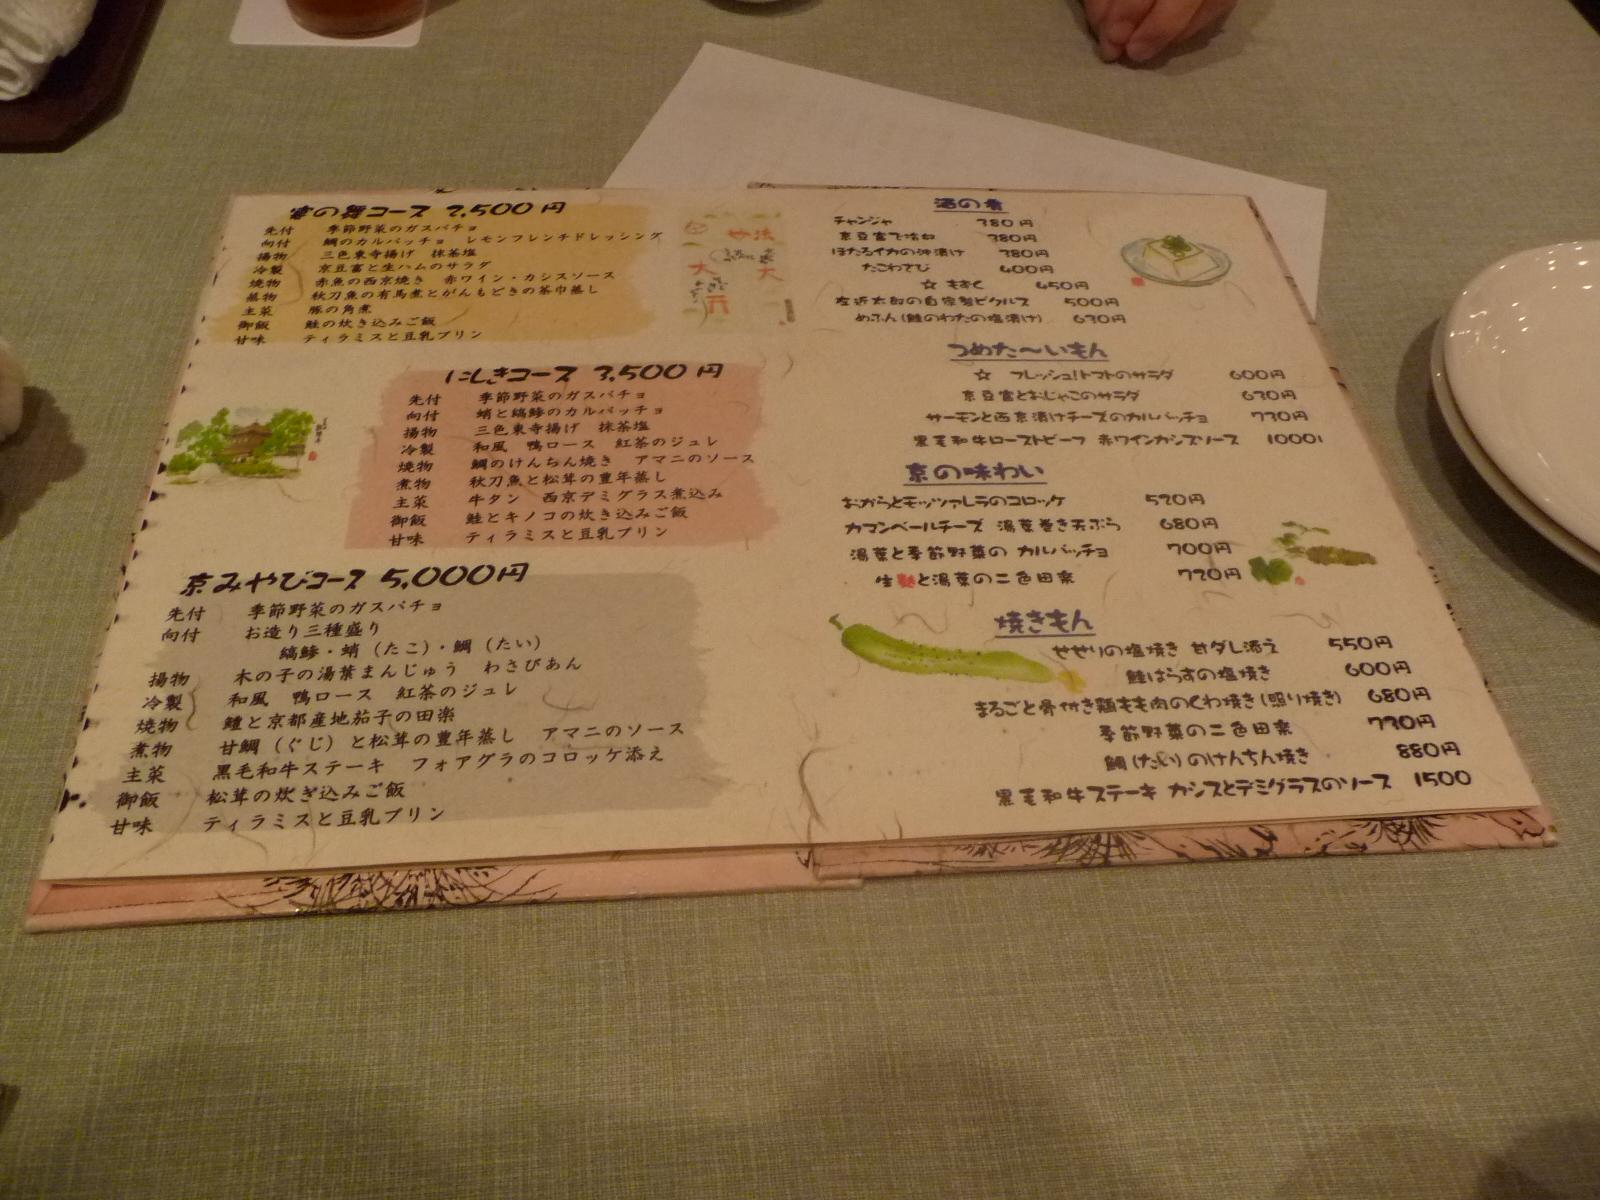 宴の舞コース 2,500円
先付 季節野菜のガスパチョ
向付 鯛のカルパッチョ レモンフレンチドレッシング
揚物 三色東寺揚げ 抹茶塩
冷製 京豆富と生ハムのサラダ
焼物 赤魚の西京焼き 赤ワイン・カシスソース
蒸物 秋刀魚の有馬煮とがんもどきの茶巾蒸し
主菜 豚の角煮
御飯 鮭の炊き込みご飯
甘味 ティラミスと豆乳プリン
にしきコース 3,500円
先付 季節野菜のガスパチョ
向付 蛸と縞鯵のカルパッチョ
揚物 三色東寺揚げ 抹茶塩
冷製 和風 鴨ロース 紅茶のジュレ
焼物 鯛のけんちん焼き アマニのソース
煮物 秋刀魚と松茸の豊年蒸し
主菜 牛タン 西京デミグラス煮込み
御飯 鮭とキノコの炊き込みご飯
甘味 ティラミスと豆乳プリン
京みやびコース 5,000円
先付 季節野菜のガスパチョ
向付 お造り三種盛り
縞鯵・蛸(たこ)・鯛(たい)
揚物 木の子の湯葉まんじゅう わさびあん
冷製 和風 鴨ロース 紅茶のジュレ
焼物 鱧と京都産地茄子の田楽
煮物 甘鯛(ぐじ)と松茸の豊年蒸し アマニのソース
主菜 黒毛和牛ステーキ フォアグラのコロッケ添え
御飯 松茸の炊ぎ込みご飯
甘味 ティラミスと豆乳プリン
妙法
大 大
酒の肴
チャンジャ 380円
京豆富で冷奴 380円
ほたるイカの沖漬け 380円
たこわさび 400円
☆ もずく 450円
左近太郎の自家製ピクルス 500円
めふん(鮭のわたの塩漬け) 630円
つめた〜いもん
☆ フレッシュ!トマトのサラダ 600円
京豆富とおじゃこのサラダ 630円
サーモンと西京漬けチーズのカルパッチョ 730円
黒毛和牛ローストビーフ 赤ワインカシスソース 1000
京の味わい
おからとモッツァレラのコロッケ 520円
カマンベールチーズ 湯葉巻き天ぷら 680円
湯葉と季節野菜の カルパッチョ 700円
生麩と湯葉の二色田楽 720円
焼きもん
せせりの塩焼き 甘ダレ添え 550円
鮭はらすの塩焼き 600円
まるごと骨付き鶏もも肉のくわ焼き(照り焼き) 680円
季節野菜の二色田楽 730円
鯛(たい)のけんちん焼き 880円
黒毛和牛ステーキ カシスとデミグラスのソース 1500